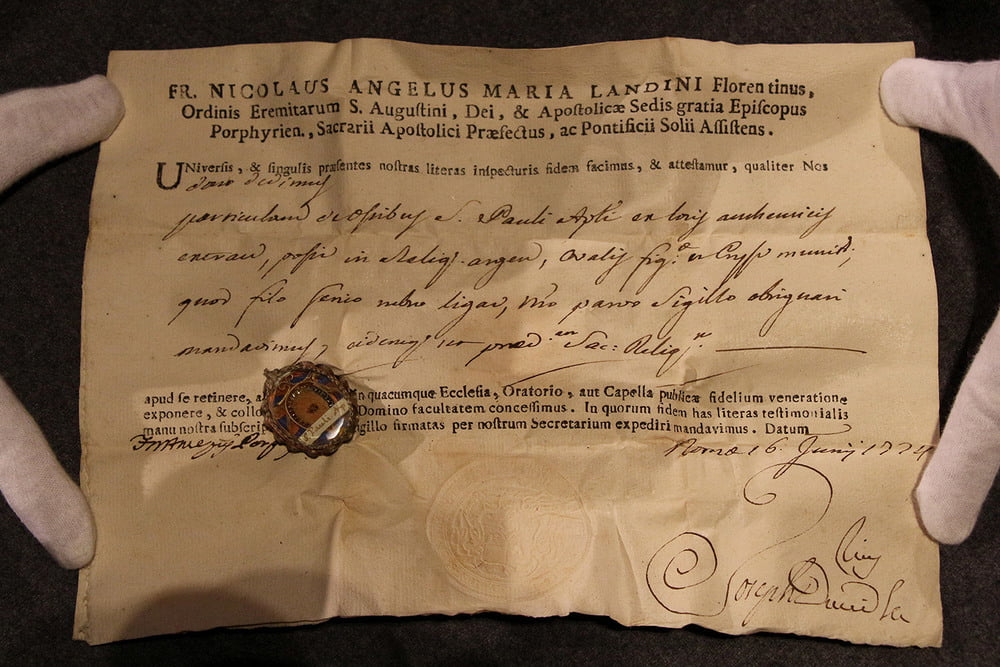 FR. NICOLAUS ANGELUS MARIA LANDINI Florentinus,
Ordinis Eremitarum S. Augustini, Dei, & Apostolicæ Sedis gratia Episcopus
Porphyrien., Sacrarii Apostolici Præfectus, ac Pontificii Solii Assistens.
UNiversis, & singulis præsentes nostras literas inspecturis fidem facimus, & attestamur, qualiter Nos
dono dedimus
particulam de Ossibus S. Pauli Apli ex locis authenticis
extract, posit in Reliq. argen, ovalis fig.æ Cryst munit,
quod filo serico rubro ligat, parvo Sigillo obsignari
mandavimus,
apud se retinere, a in quacumque Ecclesia, Oratorio, aut Capella publicæ fidelium veneratione
exponere, & collo Domino facultatem concessimus. In quorum fidem has literas testimonialis
manu nostra subscrip gillo firmatas per nostrum Secretarium expediri mandavimus. Datum
Romæ 16. Junij 1774
Joseph